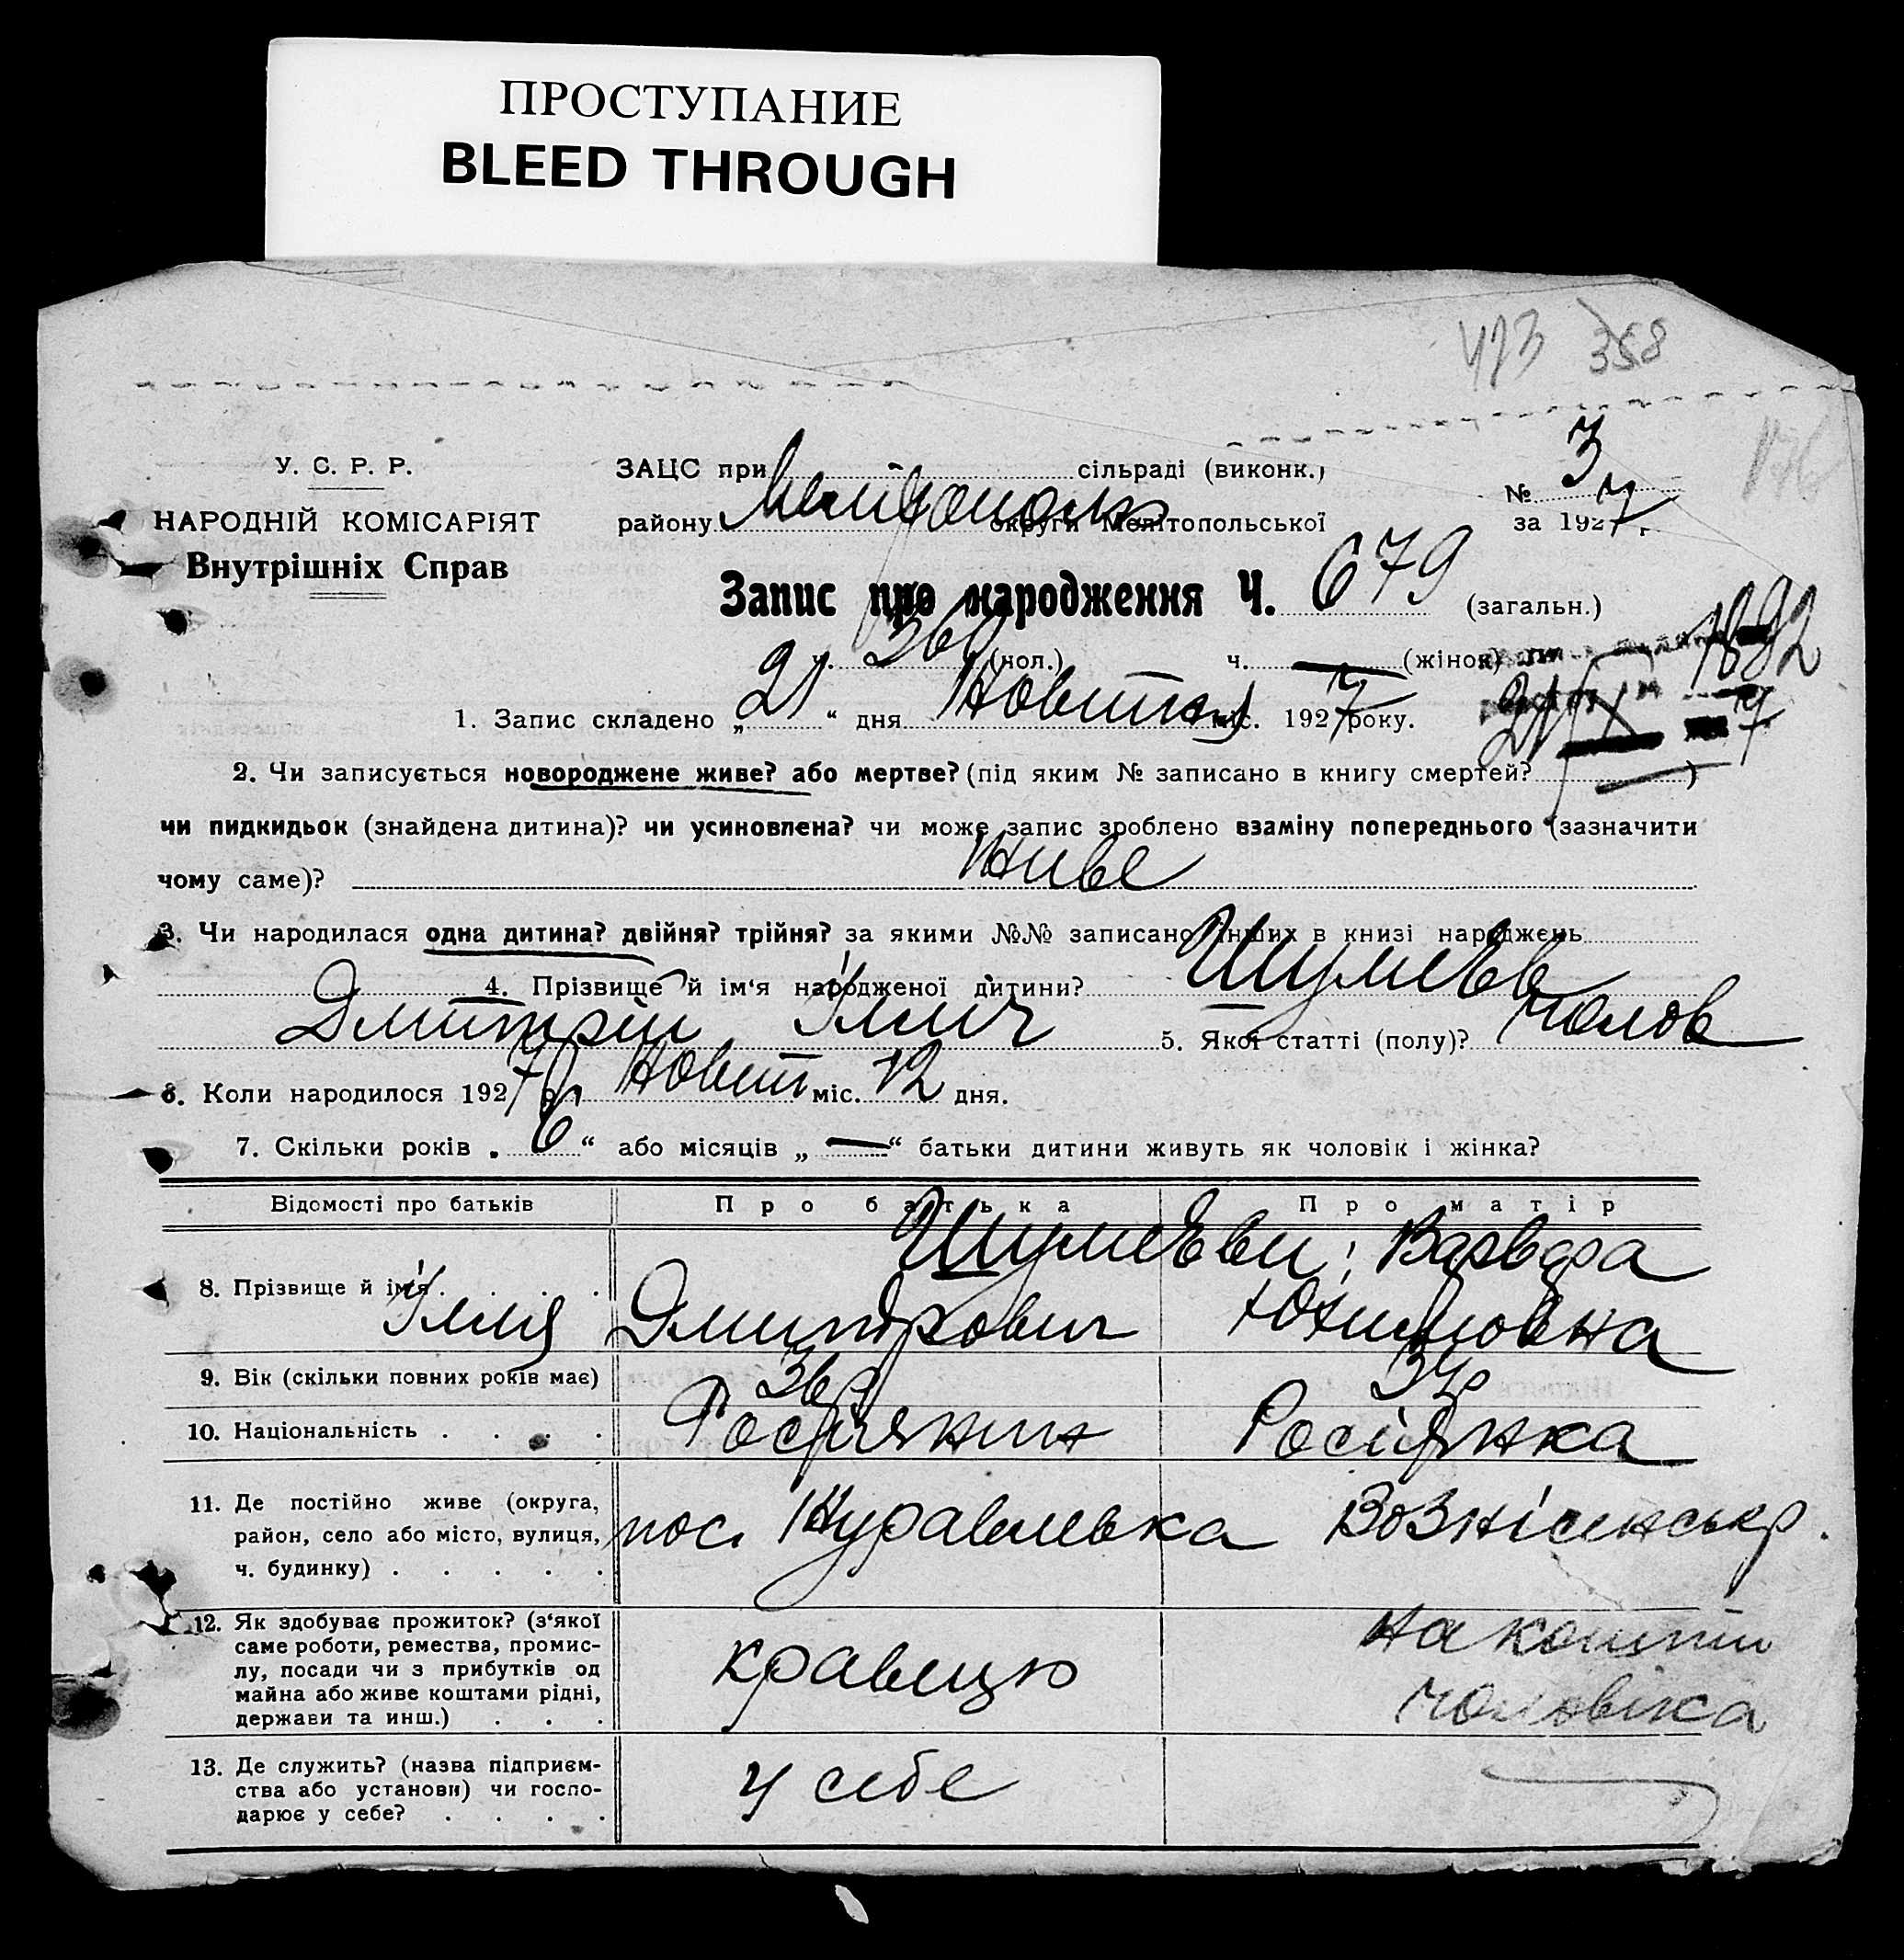 ПРОСТУПАНИЕ
BLEED THROUGH
473 358
176
У. С. Р. Р.
НАРОДНІЙ КОМІСАРІЯТ
Внутрішніх Справ
ЗАЦС при сільраді (виконк.)
району Мелітопольськ округи Мелітопольської
№ 3
за 1927 р.
Запис про народження Ч. 679 (загальн.)
ч. 360 (чол.) ч. — (жінок) 1892
1. Запис складено „21“ дня Новитня міс. 1927 року.
2. Чи записується новороджене живе? або мертве? (під яким № записано в книгу смертей? — )
чи пидкидьок (знайдена дитина)? чи усиновлена? чи може запис зроблено взаміну попереднього (зазначити
чому саме)? живе
3. Чи народилася одна дитина? двійня? трійня? за якими №№ записано инших в книзі народжень
4. Прізвище й ім'я народженої дитини? Шумаєв
Дмитрій Ілліч 5. Якої статті (полу)? Чолов
6. Коли народилося 1927 р. Новит міс. 12 дня.
7. Скільки років „6“ або місяців „—“ батьки дитини живуть як чоловік і жінка?
Відомості про батьків Про батька Про матір
8. Прізвище й ім'я
Ілля Дмитрович Варвара
9. Вік (скільки повних років має) 36 р 34 р
10. Національність Росіянин Росіянка
11. Де постійно живе (округа,
район, село або місто, вулиця,
ч. будинку)
пос. Журавлевка Вознісенськ р.
12. Як здобуває прожиток? (з'якої
саме роботи, ремества, промис-
лу, посади чи з прибутків од
майна або живе коштами рідні,
держави та инш.)
кравецю
на кошти
чоловіка
13. Де служить? (назва підприєм-
ства або установи) чи госпо-
дарює у себе?
у себе